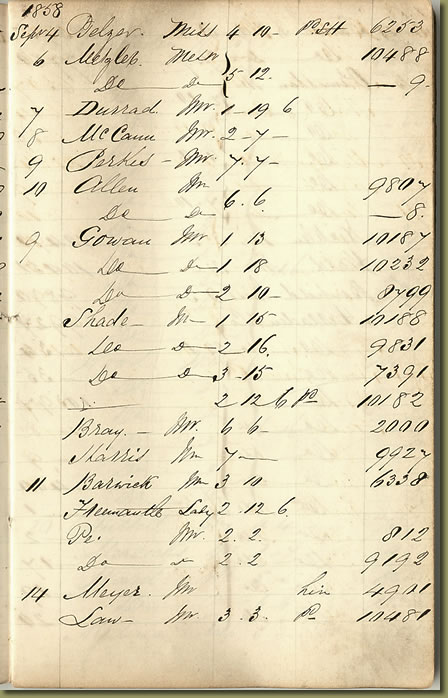 1858
Sepr 4 Belzer. Miss 4 10 - 6253
6 Metzler. 10488
Do do 5 12. — 9
7 Durrad. Mr. 1 - 19 6
8 McCann Mr. 2 - 7 -
9 Perkes - Mr 7. 7 -
10 Allen Mr 9807
Do do 6. 6. — 8.
9 Gowan Mr 1 13 10187
Do do 1 18 10232
Do do 2 10 - 9799
Shade - Mr 1 15 10188
Do do 2 16. 9831
Do do 3 - 15 7391
2 12 6 Pd 10182
Bray. - Mr. 6 6 - 2000
Harris Mr 7 - 9927
11 Barwick Mr 3 10 6338
Fremantle Lady 2. 12 6.
Mr. 2. 2. 812
Do do 2. 2 9192
14 Meyer. Mr 4901
Law - Mr. 3. 3. Pd 10481